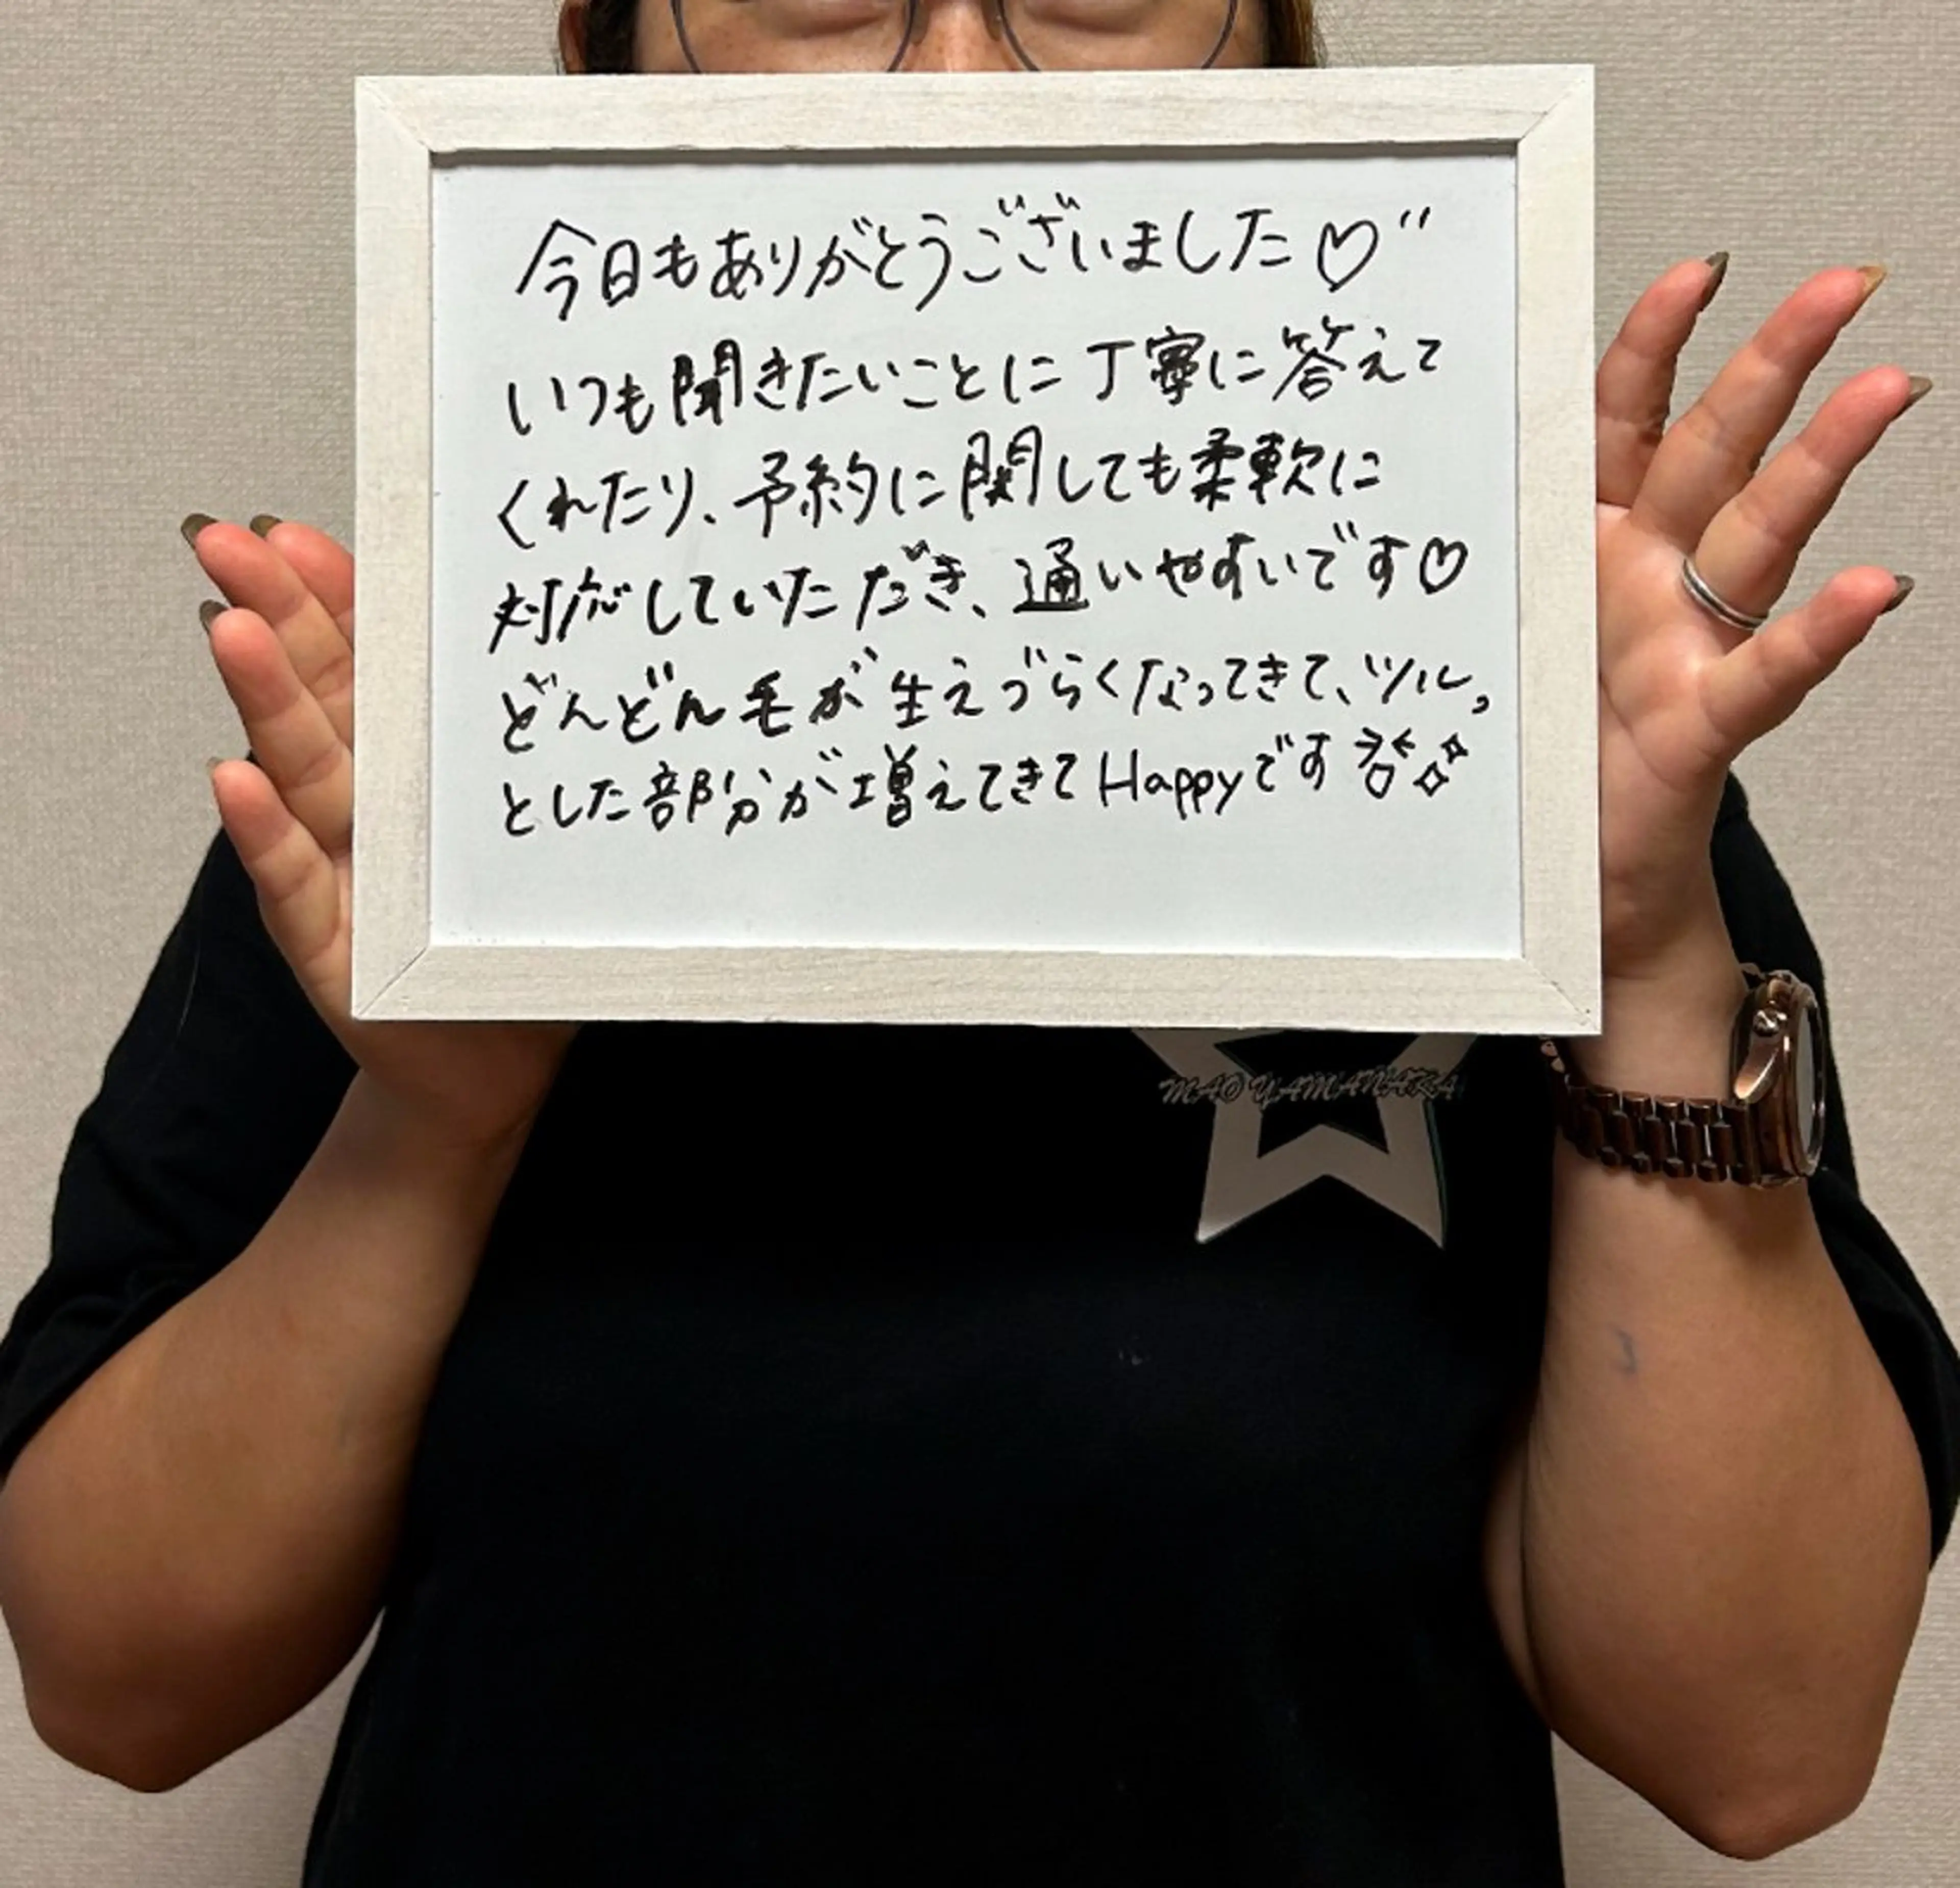 今日もありがとうございました♡"
いつも聞きたいことに丁寧に答えて
くれたり、予約に関しても柔軟に
対応していただき、通いやすいです♡
どんどん毛が生えづらくなってきて、ツルっ
とした部分が増えてきてHappyです
MAO YAMANAKA